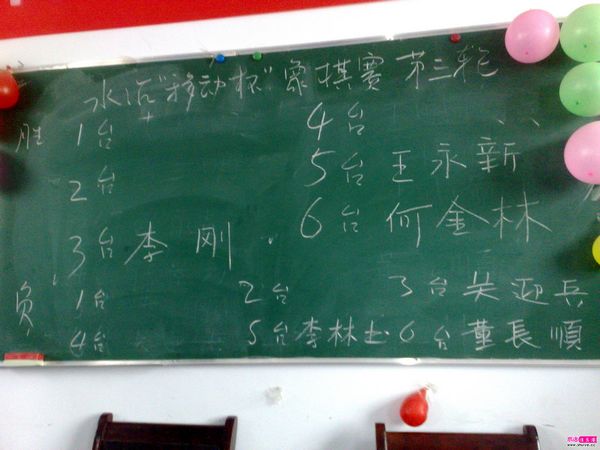 水泥"移动杯"象棋赛 第三轮
胜 1台 4台
2台 5台 王永新
3台 李刚 6台 何金林
负 1台 2台 3台 吴迎長
4台 5台 李林土 6台 董長順